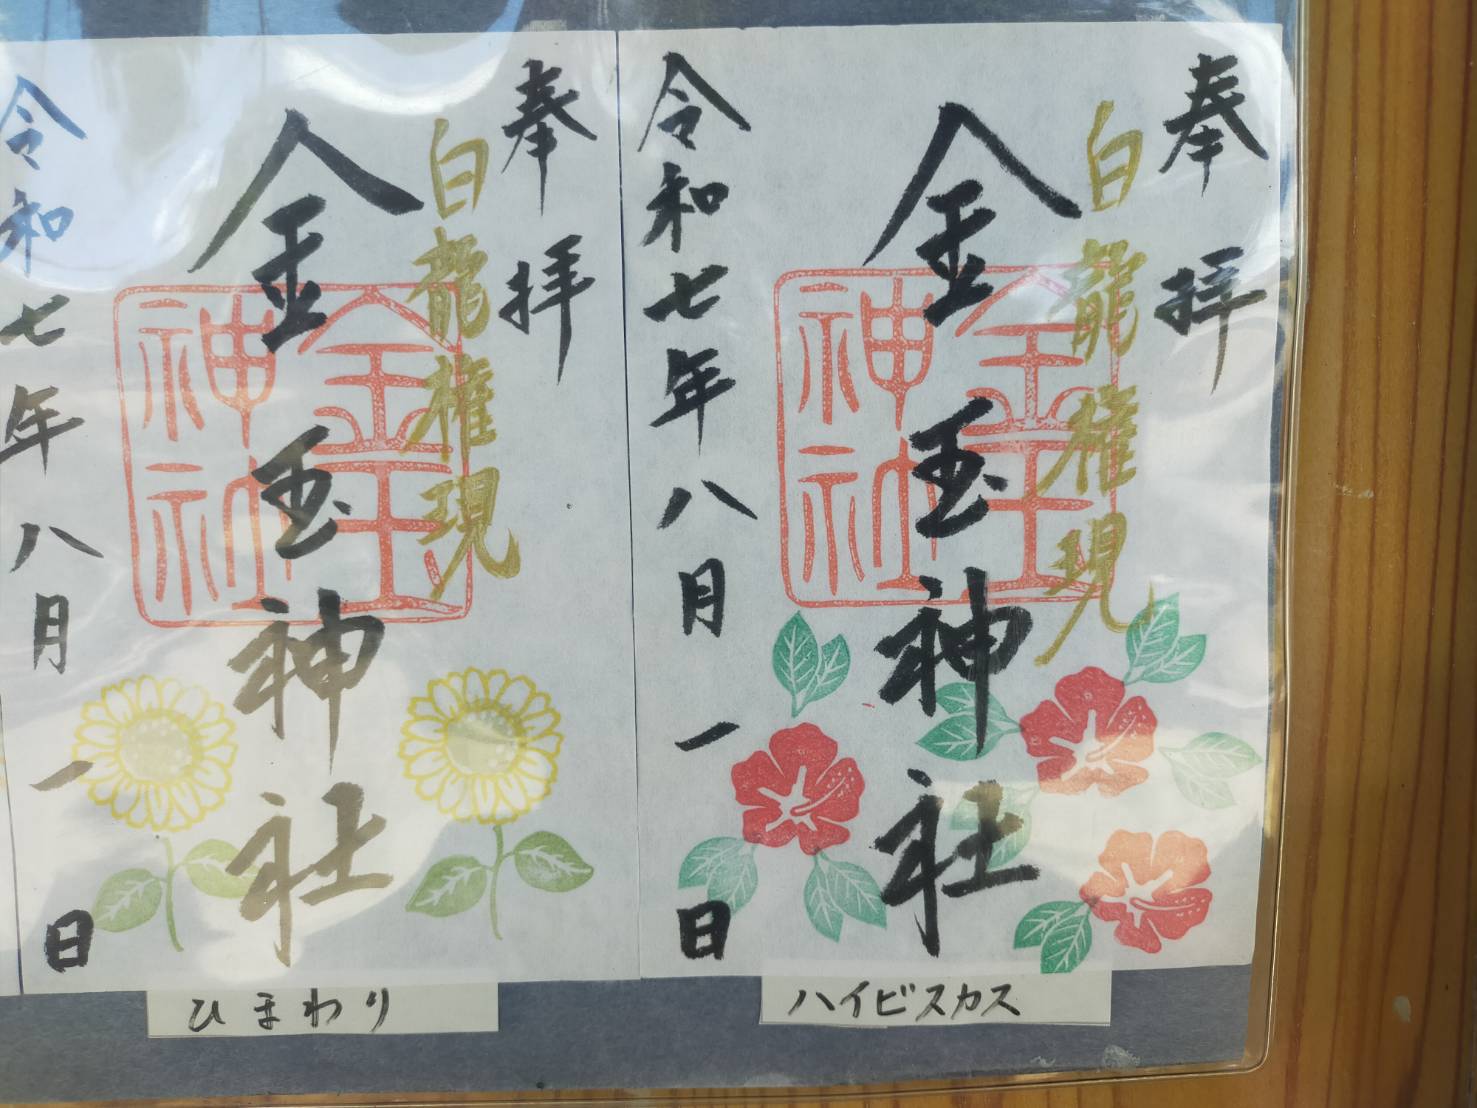 奉拝
白龍権現
金玉神社
金玉神社
令和七年八月一日
ハイビスカス
奉拝
白龍権現
金玉神社
金玉神社
令和七年八月一日
ひまわり